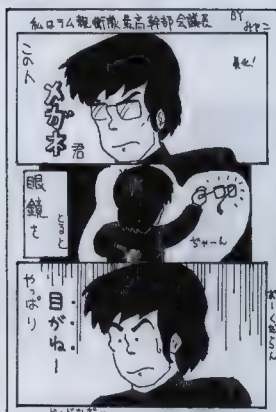 私はラム親衛隊最高幹部会議長
BY みやこ
美化!
この人
メガネ君
眼鏡を
とると
ぢゃーん
やっぱり
目がねー
おーくだらん